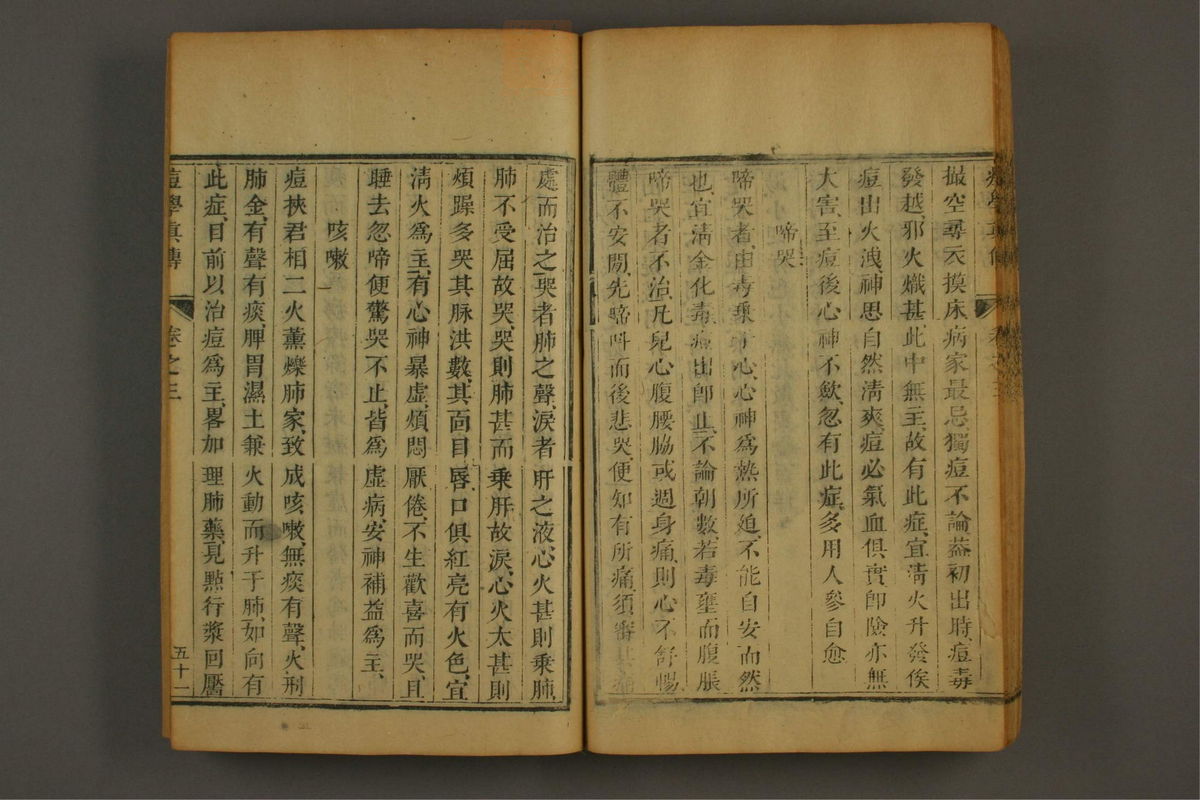 撮空尋衣摸床病家最忌獨痘不論蓋初出時痘毒
發越邪火熾甚此中無主故有此症宜淸火升發俟
痘出火洩神思自然淸爽痘必氣血俱實卽險亦無
大害至痘後心神不歛忽有此症多用人參自愈
啼哭
啼哭者由毒乘于心心神爲熱所廹不能自安而然
也宜淸金化毒痘出卽止不論朝數若毒壅而腹脹
啼哭者不治凡兒心腹腰脇或週身痛則心不舒暢
體不安閒先啼呌而後悲哭便知有所痛須審其痛
處而治之哭者肺之聲淚者肝之液心火甚則乘肺
肺不受屈故哭哭則肺甚而乘肝故淚心火太甚則
煩躁多哭其脉洪數其面目唇口俱紅亮有火色宜
淸火爲主有心神暴虛煩悶厭倦不生歡喜而哭且
睡去忽啼便驚哭不止皆爲虛病安神補益爲主
咳嗽
痘挾君相二火薰爍肺家致成咳嗽無痰有聲火刑
肺金有聲有痰脾胃濕土兼火動而升于肺如向有
此症目前以治痘爲主畧加理肺藥見點行漿回靨
痘學眞傳 卷之三 五十二